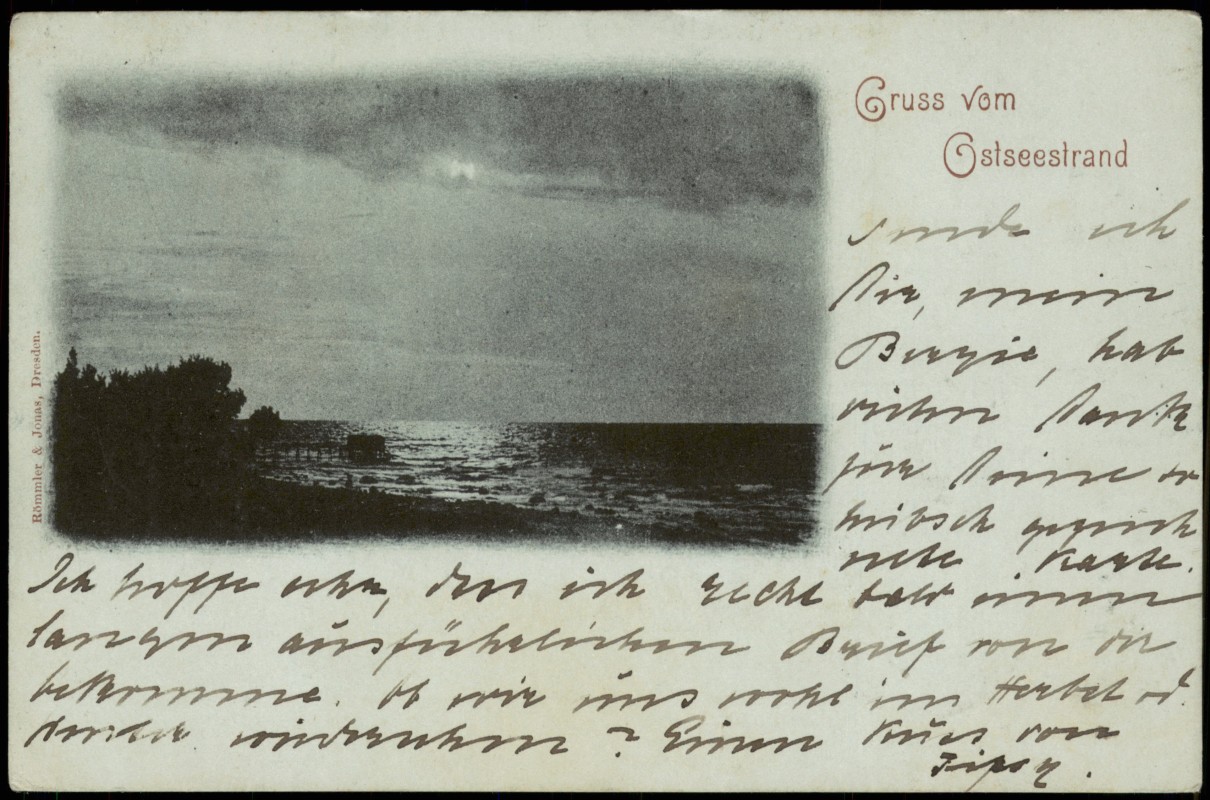 Gruss vom
Ostseestrand
sende ich
Dir, mein
hab
vielen Dank
für Deine so
hübsch gezeich
nete Karte.
Ich hoffe sehr, dass ich recht bald einen
langen ausführlichen Brief von dir
bekomme. Ob wir uns wohl im Herbst od.
wiedersehen? Einen Kuss von
Römmler & Jonas, Dresden.